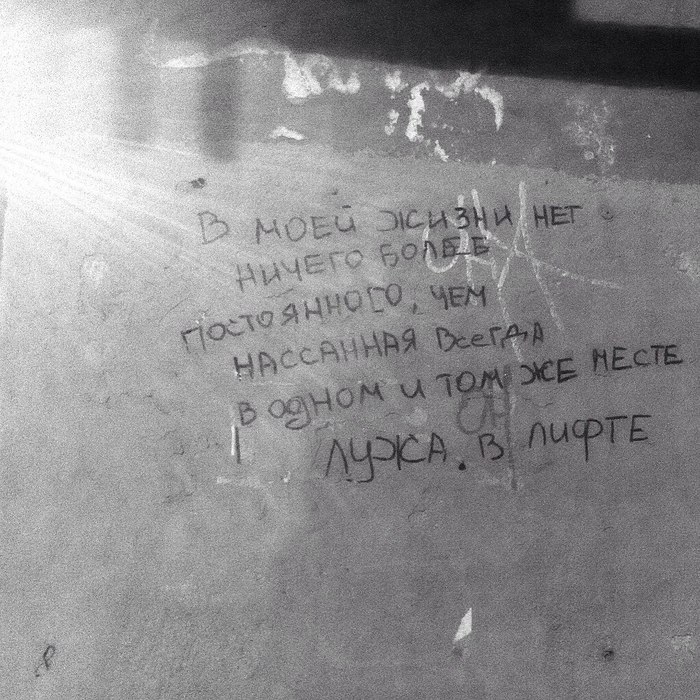 В МОЕЙ ЖИЗНИ НЕТ
НИЧЕГО БОЛЕЕ
ПОСТОЯННОГО, ЧЕМ
НАССАННАЯ ВсеГДА
В ОдНОМ И ТОМ ЖЕ МЕСТЕ
ЛУЖА. В ЛИФТЕ